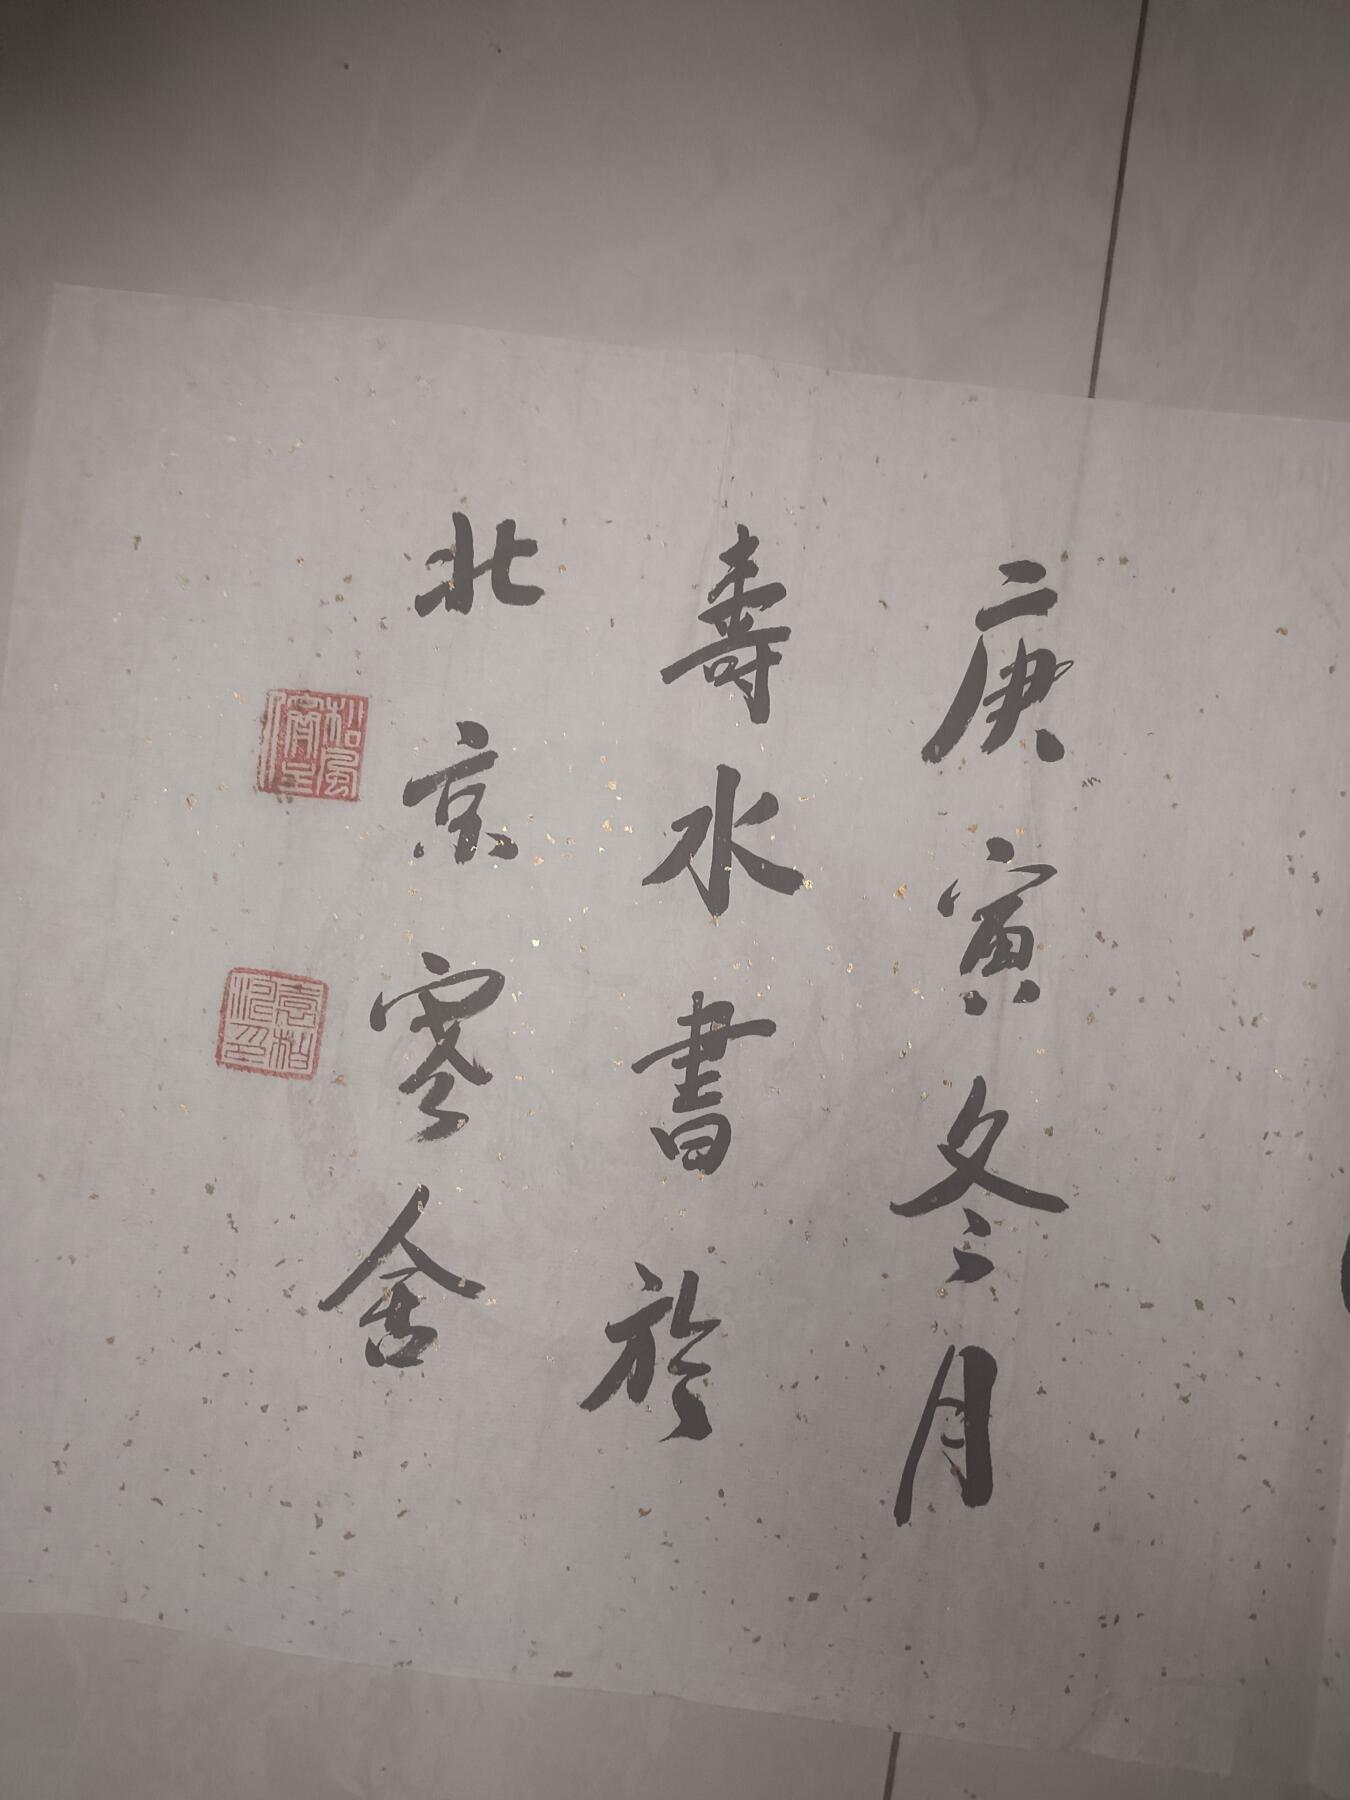 庚寅冬月
壽水書於
北京寄舍